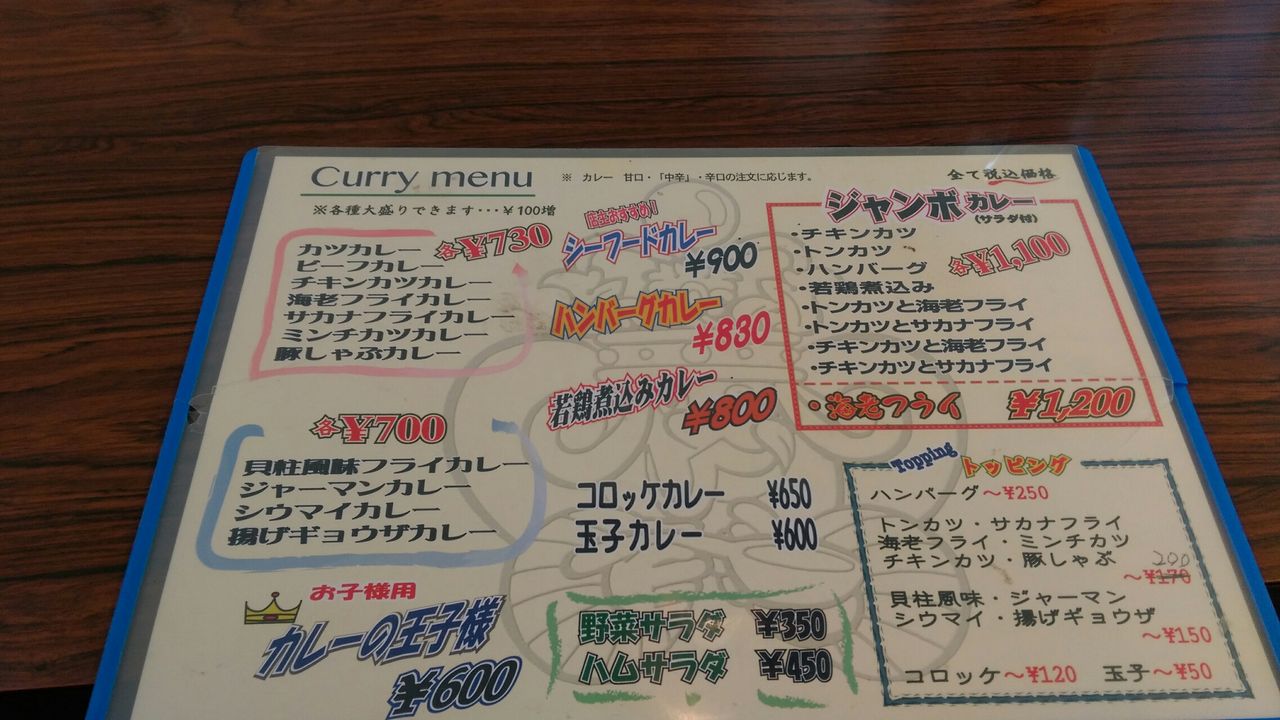 Curry menu
※ カレー 甘口・「中辛」・辛口の注文に応じます。
全て税込価格
※各種大盛りできます・・・¥100増
各¥730
カツカレー
ビーフカレー
チキンカツカレー
海老フライカレー
サカナフライカレー
ミンチカツカレー
豚しゃぶカレー
各¥700
貝柱風味フライカレー
ジャーマンカレー
シウマイカレー
揚げギョウザカレー
お子様用
カレーの王子様
¥600
店主おすすめ!
シーフードカレー
¥900
ハンバーグカレー
¥830
若鶏煮込みカレー
¥800
コロッケカレー ¥650
玉子カレー ¥600
野菜サラダ ¥350
ハムサラダ ¥450
ジャンボカレー
(サラダ付)
・チキンカツ
・トンカツ
・ハンバーグ 各¥1,100
・若鶏煮込み
・トンカツと海老フライ
・トンカツとサカナフライ
・チキンカツと海老フライ
・チキンカツとサカナフライ
・海老フライ ¥1,200
Topping トッピング
ハンバーグ〜¥250
トンカツ・サカナフライ
海老フライ・ミンチカツ
チキンカツ・豚しゃぶ
200
〜¥170
貝柱風味・ジャーマン
シウマイ・揚げギョウザ
〜¥150
コロッケ〜¥120 玉子〜¥50